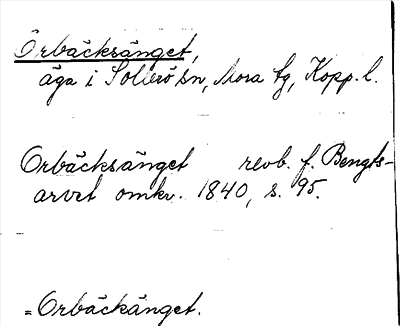 Orbäcksänget,
äga i Sollerö sn, Mora tg, Kopp. l.
Orbäcksänget revb. f. Bengts-
arvet omkr. 1840, s. 95.
= Orbäckänget.